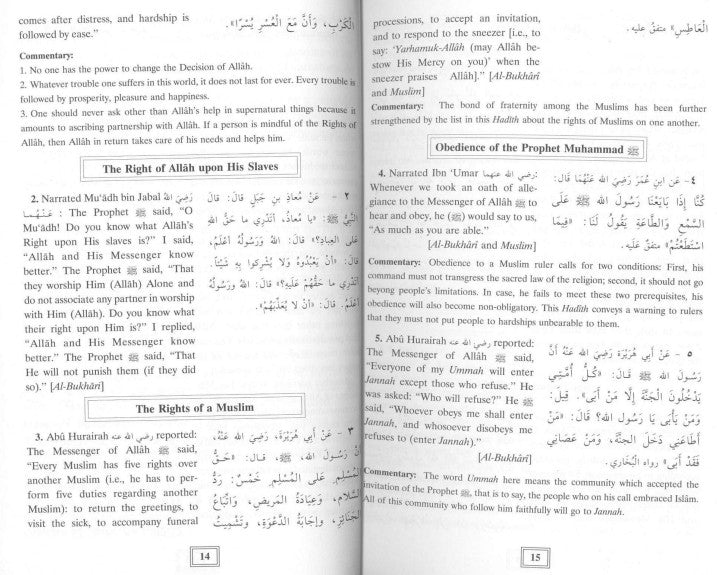 comes after distress, and hardship is
followed by ease."
الْكَرْبِ، وَأَنَّ مَعَ الْعُسْرِ يُسْرًا».
Commentary:
1. No one has the power to change the Decision of Allâh.
2. Whatever trouble one suffers in this world, it does not last for ever. Every trouble is
followed by prosperity, pleasure and happiness.
3. One should never ask other than Allâh's help in supernatural things because it
amounts to ascribing partnership with Allâh. If a person is mindful of the Rights of
Allâh, then Allâh in return takes care of his needs and helps him.
The Right of Allâh upon His Slaves
2. Narrated Mu'âdh bin Jabal رَضِيَ اللهُ
عَنْهُمَا : The Prophet ﷺ said, "O
Mu'âdh! Do you know what Allâh's
Right upon His slaves is?" I said,
"Allâh and His Messenger know
better." The Prophet ﷺ said, "That
they worship Him (Allâh) Alone and
do not associate any partner in worship
with Him (Allâh). Do you know what
their right upon Him is?" I replied,
"Allâh and His Messenger know
better." The Prophet ﷺ said, "That
He will not punish them (if they did
so)." [Al-Bukhârî]
٢ - عَنْ مُعَاذِ بْنِ جَبَلٍ قَالَ: قَالَ
النَّبِيُّ ﷺ: «يَا مُعَاذُ، أَتَدْرِي مَا حَقُّ اللهِ
عَلَى الْعِبَادِ؟» قَالَ: اللهُ وَرَسُولُهُ أَعْلَمُ،
قَالَ: «أَنْ يَعْبُدُوهُ وَلَا يُشْرِكُوا بِهِ شَيْئًا.
أَتَدْرِي مَا حَقُّهُمْ عَلَيْهِ؟» قَالَ: اللهُ وَرَسُولُهُ
أَعْلَمُ. قَالَ: «أَنْ لَا يُعَذِّبَهُمْ».
The Rights of a Muslim
3. Abû Hurairah رضي الله عنه reported:
The Messenger of Allâh ﷺ said,
"Every Muslim has five rights over
another Muslim (i.e., he has to per-
form five duties regarding another
Muslim): to return the greetings, to
visit the sick, to accompany funeral
٣ - عَنْ أَبِي هُرَيْرَةَ، رَضِيَ اللهُ عَنْهُ،
أَنَّ رَسُولَ اللهِ، ﷺ، قَالَ: «حَقُّ
الْمُسْلِمِ عَلَى الْمُسْلِمِ خَمْسٌ: رَدُّ
السَّلَامِ، وَعِيَادَةُ الْمَرِيضِ، وَاتِّبَاعُ
الْجَنَائِزِ، وَإِجَابَةُ الدَّعْوَةِ، وَتَشْمِيتُ
14
processions, to accept an invitation,
and to respond to the sneezer [i.e., to
say: 'Yarhamuk-Allâh (may Allâh be-
stow His Mercy on you)' when the
sneezer praises Allâh]." [Al-Bukhârî
and Muslim]
الْعَاطِسِ» متفق عليه.
Commentary: The bond of fraternity among the Muslims has been further
strengthened by the list in this Hadîth about the rights of Muslims on one another.
Obedience of the Prophet Muhammad ﷺ
4. Narrated Ibn 'Umar رضي الله عنهما:
Whenever we took an oath of alle-
giance to the Messenger of Allâh ﷺ to
hear and obey, he (ﷺ) would say to us,
"As much as you are able."
[Al-Bukhari and Muslim]
٤ - عَنِ ابْنِ عُمَرَ رَضِيَ اللهُ عَنْهُمَا قَالَ:
كُنَّا إِذَا بَايَعْنَا رَسُولَ اللهِ ﷺ عَلَى
السَّمْعِ وَالطَّاعَةِ يَقُولُ لَنَا: «فِيمَا
اسْتَطَعْتُمْ» متفق عليه.
Commentary: Obedience to a Muslim ruler calls for two conditions: First, his
command must not transgress the sacred law of the religion; second, it should not go
beyong people's limitations. In case, he fails to meet these two prerequisites, his
obedience will also become non-obligatory. This Hadîth conveys a warning to rulers
that they must not put people to hardships unbearable to them.
5. Abû Hurairah رضي الله عنه reported:
The Messenger of Allâh ﷺ said,
"Everyone of my Ummah will enter
Jannah except those who refuse." He
was asked: "Who will refuse?" He ﷺ
said, "Whoever obeys me shall enter
Jannah, and whosoever disobeys me
refuses to (enter Jannah)."
[Al-Bukhârî]
٥ - عَنْ أَبِي هُرَيْرَةَ رَضِيَ اللهُ عَنْهُ أَنَّ
رَسُولَ اللهِ ﷺ قَالَ: «كُلُّ أُمَّتِي
يَدْخُلُونَ الْجَنَّةَ إِلَّا مَنْ أَبَى». قِيلَ:
وَمَنْ يَأْبَى يَا رَسُولَ اللهِ؟ قَالَ: «مَنْ
أَطَاعَنِي دَخَلَ الْجَنَّةَ، وَمَنْ عَصَانِي
فَقَدْ أَبَى» رواه البُخَاري.
Commentary: The word Ummah here means the community which accepted the
invitation of the Prophet ﷺ, that is to say, the people who on his call embraced Islâm.
All of this community who follow him faithfully will go to Jannah.
15